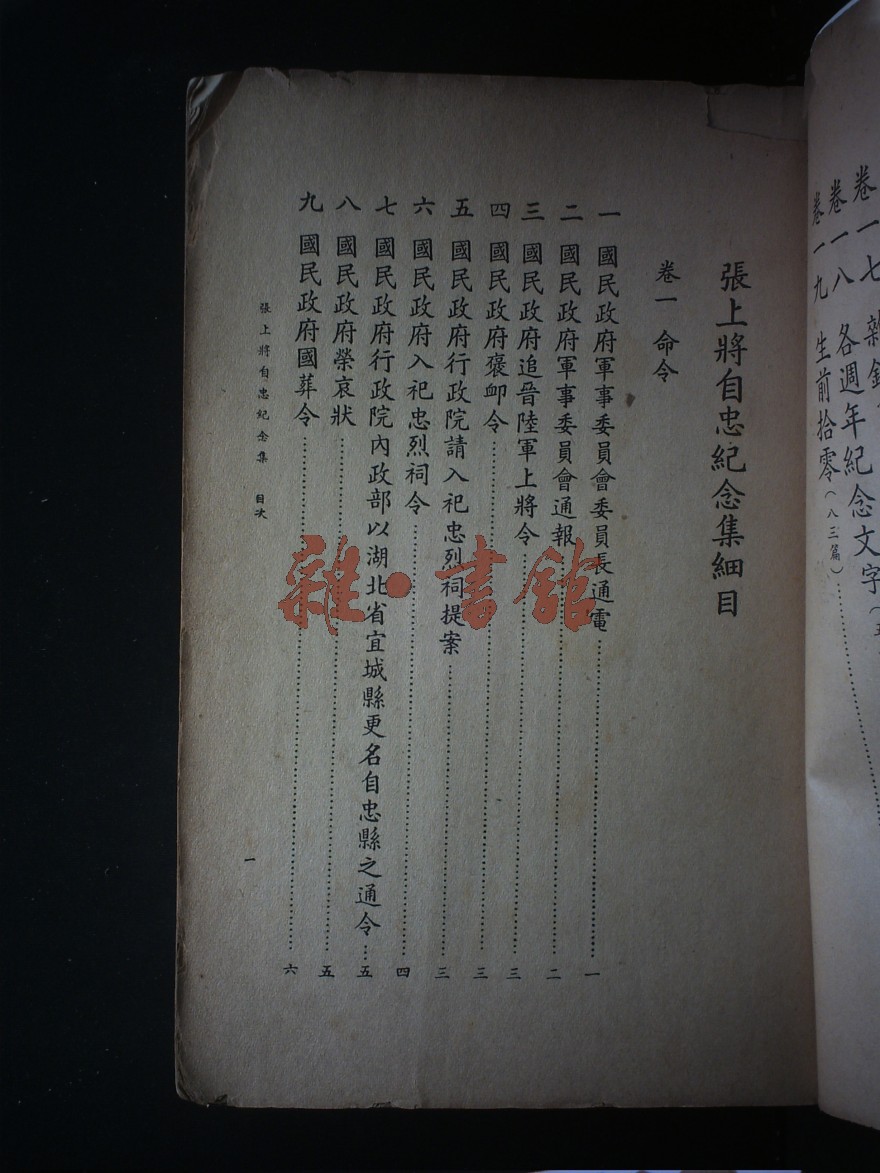 卷一七 雜錄
卷一八 各週年紀念文字
卷一九 生前拾零(八三篇)
張上將自忠紀念集細目
卷一 命令
一 國民政府軍事委員會委員長通電……一
二 國民政府軍事委員會通報……二
三 國民政府追晉陸軍上將令……三
四 國民政府褒卹令……三
五 國民政府行政院請入祀忠烈祠提案……三
六 國民政府入祀忠烈祠令……四
七 國民政府行政院內政部以湖北省宜城縣更名自忠縣之通令…五
八 國民政府榮哀狀……五
九 國民政府國葬令……六
張上將自忠紀念集 目次
一
雜·書館